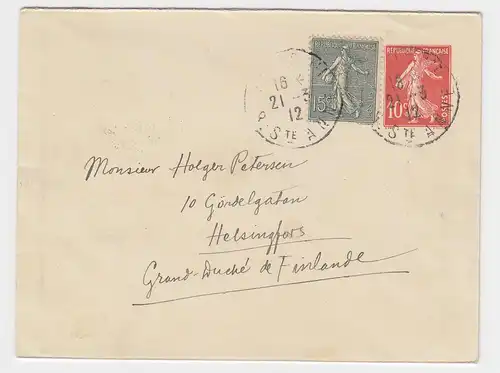 REPUBLIQUE FRANÇAISE
15c
REPUBLIQUE FRANÇAISE
10c
POSTES
16
21 - 3
12
16
21 - 3
12
Monsieur Holger Petersen
10 Gördelgatan
Helsingfors
Grand-Duché de Finlande